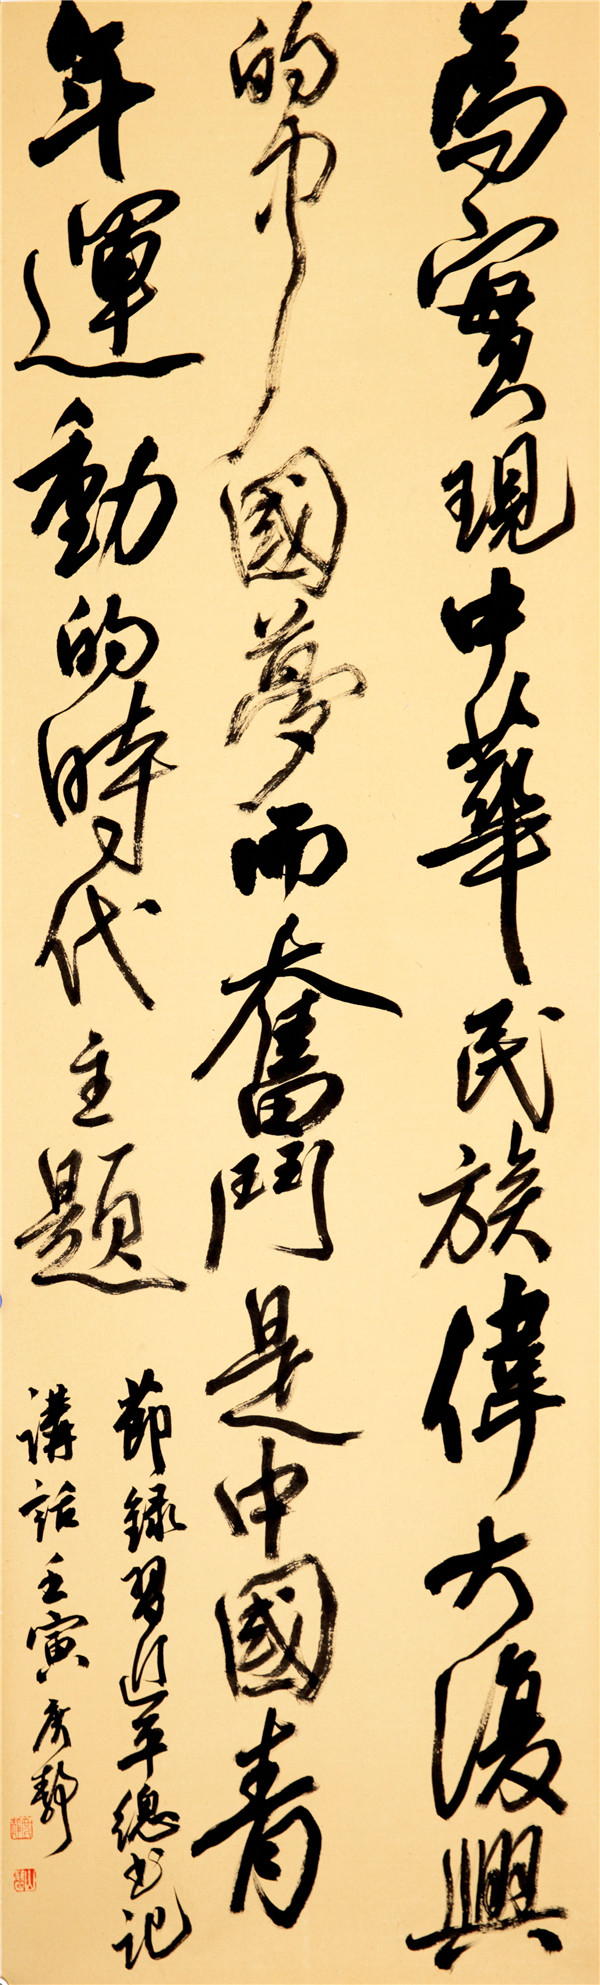 為實現中華民族偉大復興
的中國夢而奮鬥是中國青
年運動的時代主題
節録習近平總书記
講話壬寅